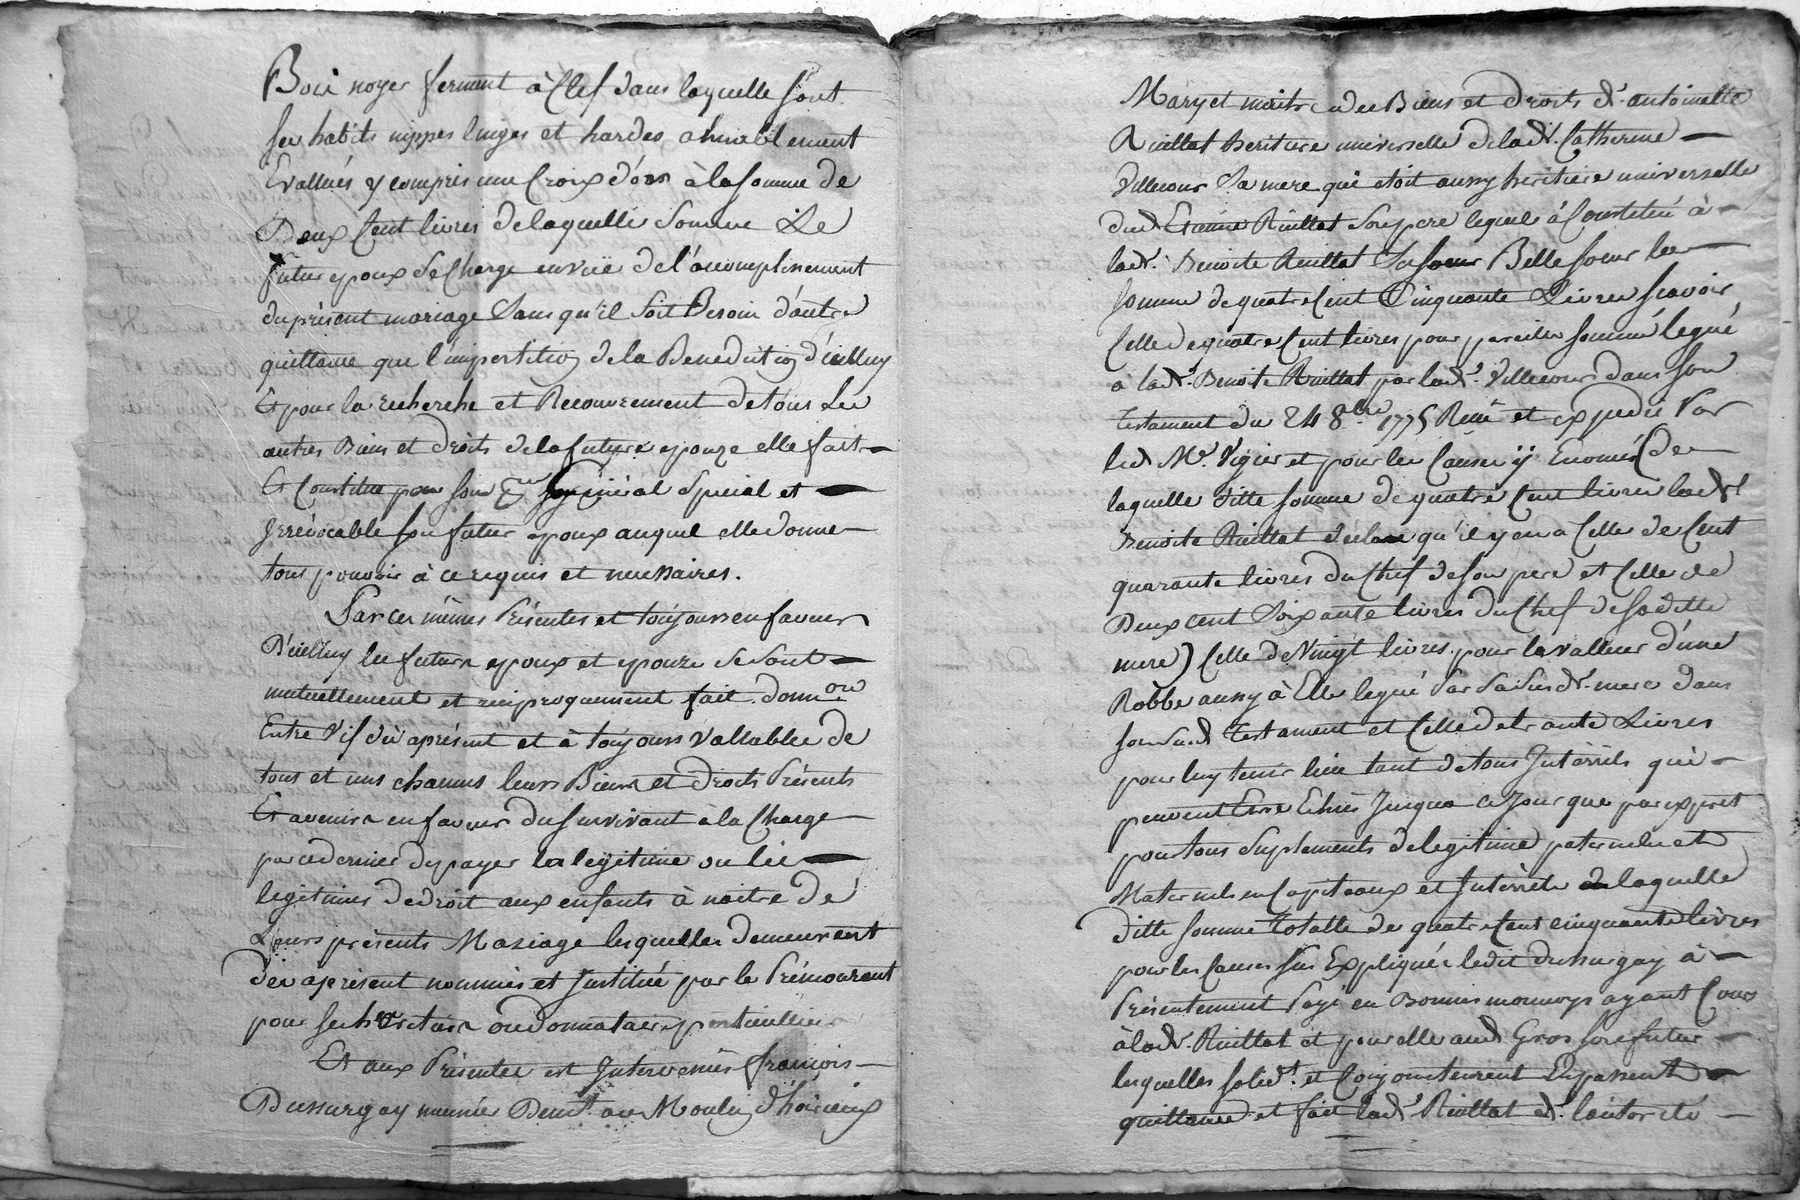 Bois noyer fermant à Clef dans laquelle sont
ses habits nippes linges et hardes amiablement
Evallués y compris une Croix d'or à la somme de
Deux Cent livres de laquelle somme Le
futur epoux se Charge en vüe de l'accomplissement
du présent mariage Sans qu'il soit Besoin d'autre
quittance que l'impartition de la Benediction d'icelluy
Et pour la recherche et Recouvrement de tous Les
autres Biens et droits de la future epouze elle fait
Et Constitue pour son général Special et
Irrévocable son futur epoux auquel elle donne
tout pouvoir à ce requis et necessaires.
Par ces mêmes Présentes et toujours en faveur
D'icelluy les futurs epoux et epouze se sont
mutuellement et reciproquement fait donnon
Entre Vif dès aprésent et à toujours Vallablee de
tous et uns chacuns leurs Biens et droits Présents
Et avenirs en faveur du survivant à la Charge
par ce dernier de payer la legitime ou les
legitimes de droit aux enfants à naitre de
Leurs présents Mariage lesquelles demeureront
dès aprésent nommés et Institué par le Prémourant
pour ses heritiers ou donnataires particulliers
Et aux Présentes est Intervenus françois
Dussurgey meunier Demt. au Moulin d'hoirieux
Mary et maitre des Biens et droits de. antoinette
Ruillat heritiere universelle de lade. Catherine
Villecour Sa mere qui etoit aussy heritiere universelle
dud Etienne Ruillat son pere lequel à Constitué à
lade. Benoite Ruillat Sa soeur Belle soeur la
somme de quatre Cent Cinquante Livres scavoir
Celle de quatre Cent livres pour pareille somme legué
à lade. Benoite Ruillat par lade. Villecour dans son
testament du 24 8bre 1775 Reçu et expedié Par
led Me. Vigier et pour les Causes ÿ Enomés (de
laquelle ditte somme de quatre Cent livres lade
Benoite Ruillat déclare qu'il y en a Celle de Cent
quarante livres du Chef de son pere et Celle de
Deux cent Soixante livres du Chef de sa ditte
mere) Celle de Vingt livres pour la valleur d'une
Robbe aussy à Elle legué Par sa susde. mere dans
son susd testament et Celle de trante Livres
pour luy tenir lieu tant de tous Intérêts qui
peuvent Etre Echus Jusqua ce Jour que par exprest
pour tous Suplements de legitime paternelle et
Maternels en Capiteaux et Intérêts de laquelle
ditte somme totalle de quatre Cent cinquante livres
pour les Causes sus Expliquée ledit dussurgey à
Présentement Payé en Bonnes monnoys ayant Cour
à lade. Ruillat et pour elle aud Gros son futur
lesquelles solidt. et Conjonctement En passent
quittance et fait lade Ruillat de. l'autorité